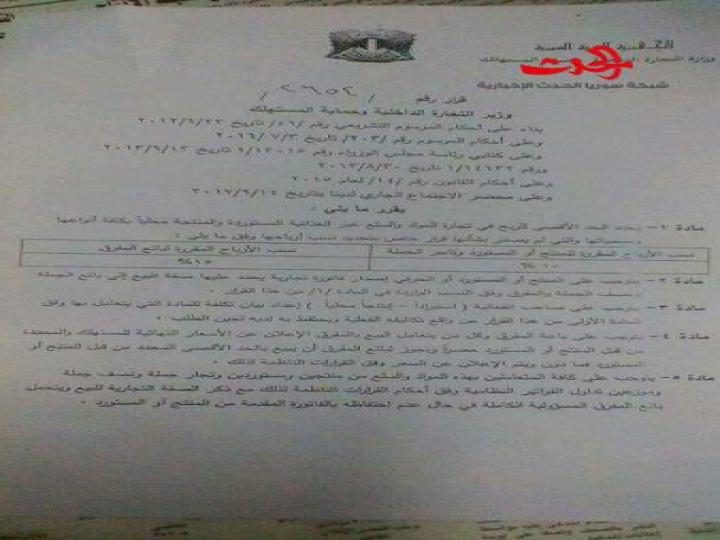 الجمهورية العربية السورية
وزارة التجارة الداخلية وحماية المستهلك
الحدث
شبكة سوريا الحدث الإخبارية
قرار رقم / ٢٦٥٤ /
وزير التجارة الداخلية وحماية المستهلك
بناء على أحكام المرسوم التشريعي رقم /٤٦/ تاريخ
وعلى أحكام المرسوم رقم /٢٠٣/ تاريخ ٢٠١٦/٧/٣
وعلى كتابي رئاسة مجلس الوزراء رقم ١/١٣٠١٥ تاريخ
ورقم ١/١٤٦٣٢ تاريخ ٢٠١٣/٨/٣٠
وعلى أحكام القانون رقم /١٤/ لعام ٢٠١٥
وعلى محضر الاجتماع الجاري لدينا بتاريخ ٢٠١٧/٩/١٤
يقرر ما يلي :
مادة ١- يحدد الحد الأقصى للربح في تجارة المواد والسلع غير الغذائية المستوردة والمنتجة محلياً بكافة أنواعها
ومسمياتها والتي لم يصدر بشأنها قرار خاص بتحديد نسب أرباحها وفق ما يلي :
نسب الأرباح المقررة للمنتج أو المستورد وتاجر الجملة
نسب الأرباح المقررة لبائع المفرق
١٠ %
١٥ %
مادة ٢- يتوجب على المنتج أو المستورد أو الحرفي إصدار فاتورة تجارية يحدد عليها صفة البيع إلى بائع الجملة
ونصف الجملة والمفرق وفق النسب الواردة في المادة /١/ من هذا القرار .
مادة ٣- يتوجب على صاحب الفعالية ( استيراداً - إنتاجاً محلياً ) إعداد بيان تكلفة للمادة التي يتعامل بها وفق
المادة الأولى من هذا القرار من واقع تكاليفه الفعلية ويحتفظ به لديه لحين الطلب .
مادة ٤- يتوجب على باعة المفرق وكل من يتعامل بالبيع بالمفرق الإعلان عن الأسعار النهائية للمستهلك والمحددة
من قبل المنتج أو المستورد حصراً ويجوز لبائع المفرق أن يبيع بالحد الأقصى المحدد من قبل المنتج أو
المستورد فما دون ويتم الإعلان عن السعر وفق القرارات الناظمة لذلك .
مادة ٥- يتوجب على كافة المتعاملين بهذه المواد والسلع من منتجين ومستوردين وتجار جملة ونصف جملة
وموزعين تداول الفواتير النظامية وفق أحكام القرارات الناظمة لذلك مع ذكر الصفة التجارية للبيع ويتحمل
بائع المفرق المسؤولية الكاملة في حال عدم احتفاظه بالفاتورة المقدمة من المنتج أو المستورد .